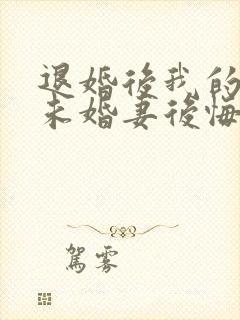 退婚後我的
未婚妻後悔
駕霧